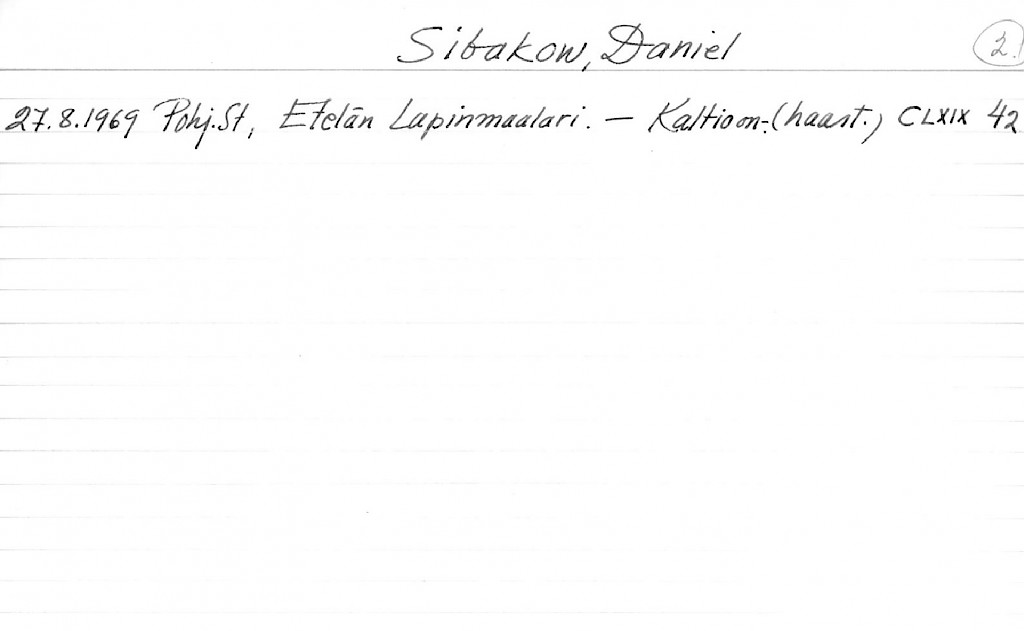 Sibakow, Daniel 2.
27.8.1969 Pohj.St, Etelän Lapinmaalari. — Kaltio on. (haast.) CLXIX 42